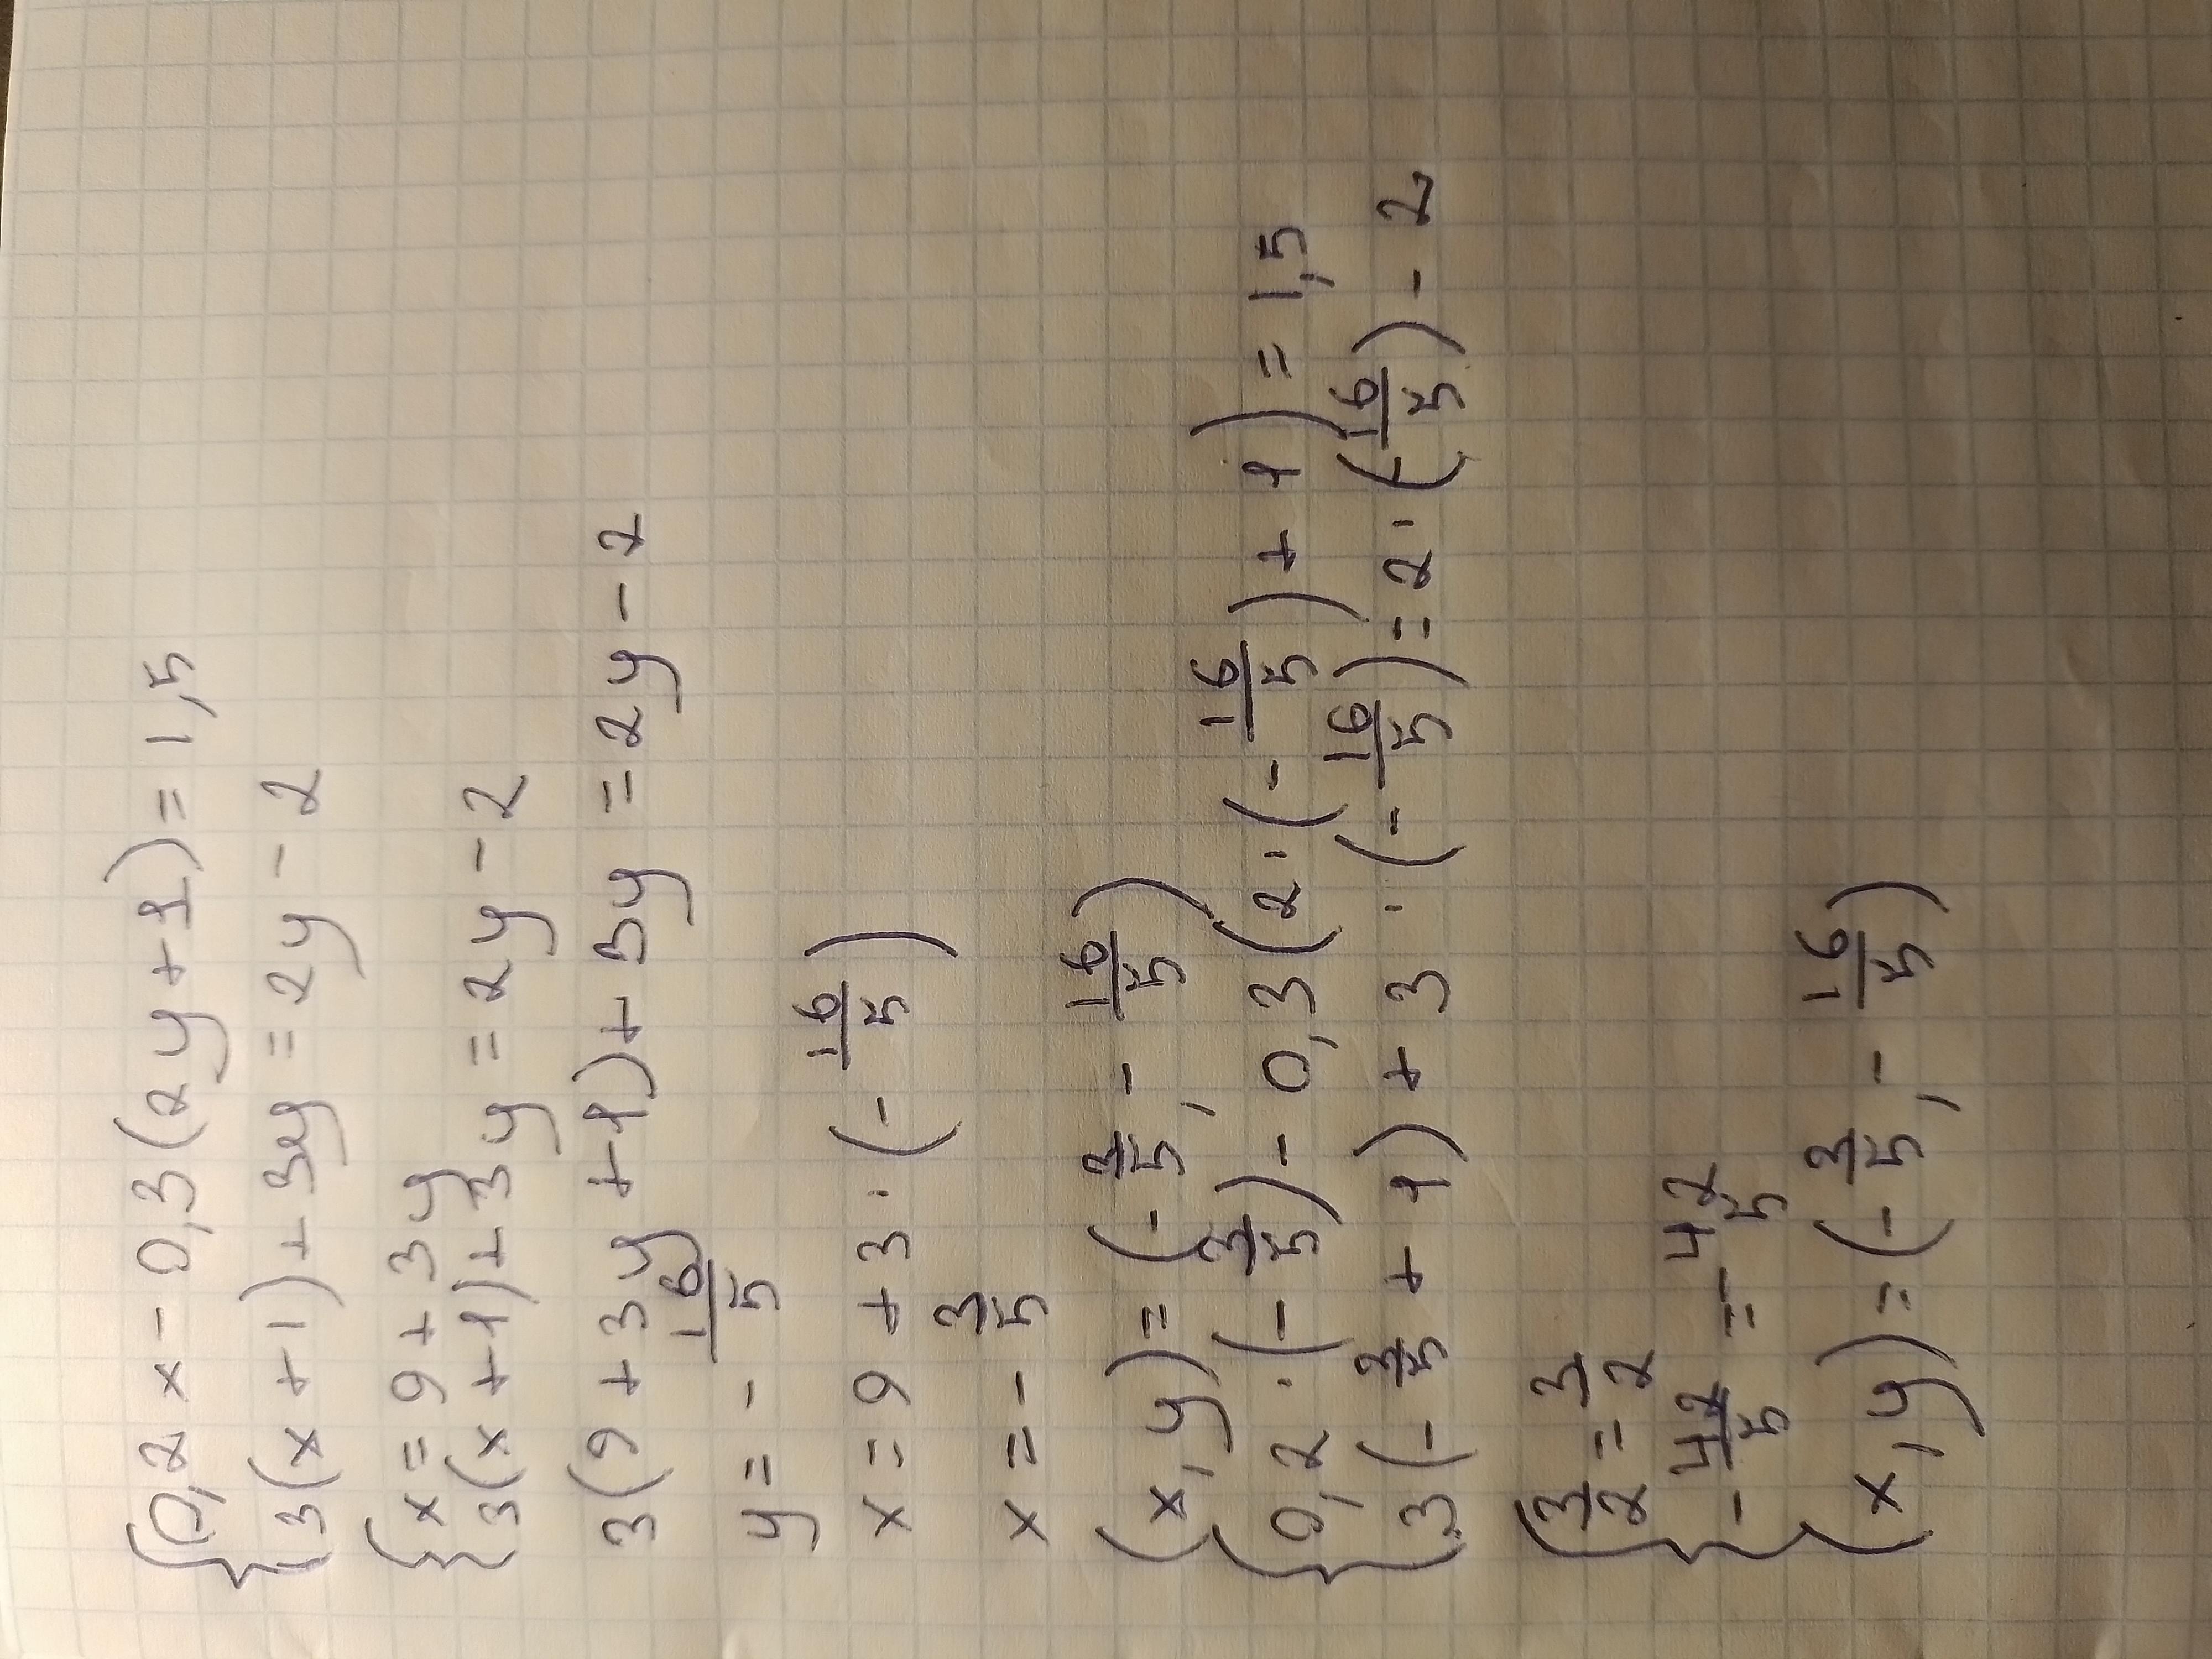 {0,2x - 0,3(2y+1) = 1,5
{3(x+1)+3y = 2y - 2
{x = 9 + 3y
{3(x+1)+3y = 2y - 2
3(9+3y+1)+3y = 2y - 2
y = - 16/5
x = 9 + 3 · (- 16/5)
x = - 3/5
(x, y) = (- 3/5, - 16/5)
{0,2 · (- 3/5) - 0,3(2 · (- 16/5) + 1) = 1,5
{3(- 3/5 + 1) + 3 · (- 16/5) = 2 · (- 16/5) - 2
{3/2 = 3/2
{- 42/5 = - 42/5
(x, y) = (- 3/5, - 16/5)